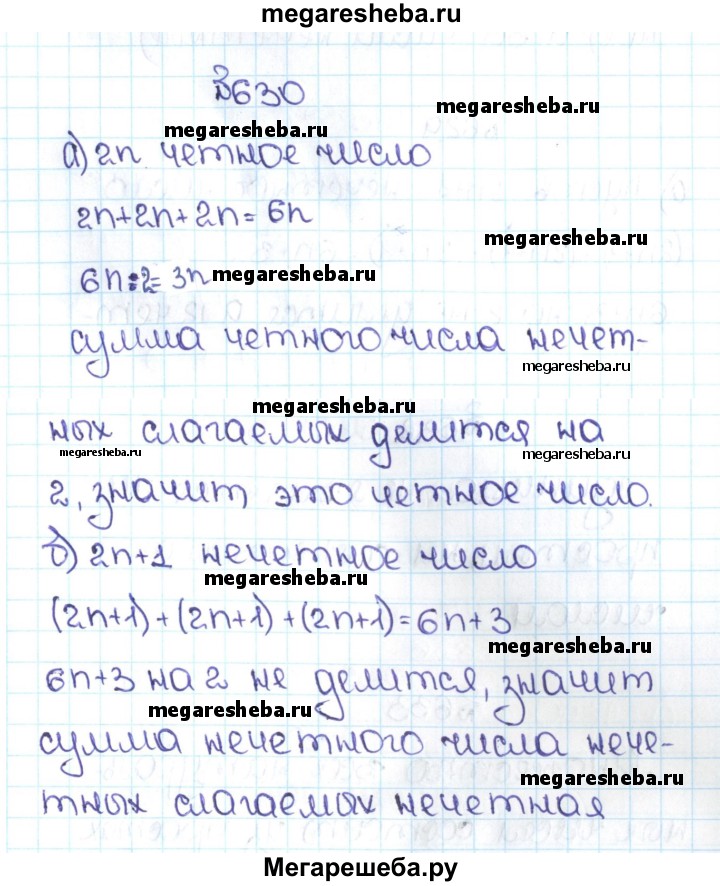 megaresheba.ru
№630
megaresheba.ru
megaresheba.ru
а) 2n четное число
2n+2n+2n=6n
megaresheba.ru
6n:2=3n megaresheba.ru
сумма четного числа нечет-
megaresheba.ru
megaresheba.ru
ных слагаемых делится на
megaresheba.ru
megaresheba.ru
2, значит это четное число.
б) 2n+1 нечетное число
megaresheba.ru
(2n+1)+(2n+1)+(2n+1)=6n+3
megaresheba.ru
6n+3 на 2 не делится, значит
megaresheba.ru
сумма нечетного числа нече-
megaresheba.ru
тных слагаемых нечетная
Мегарешеба.ру